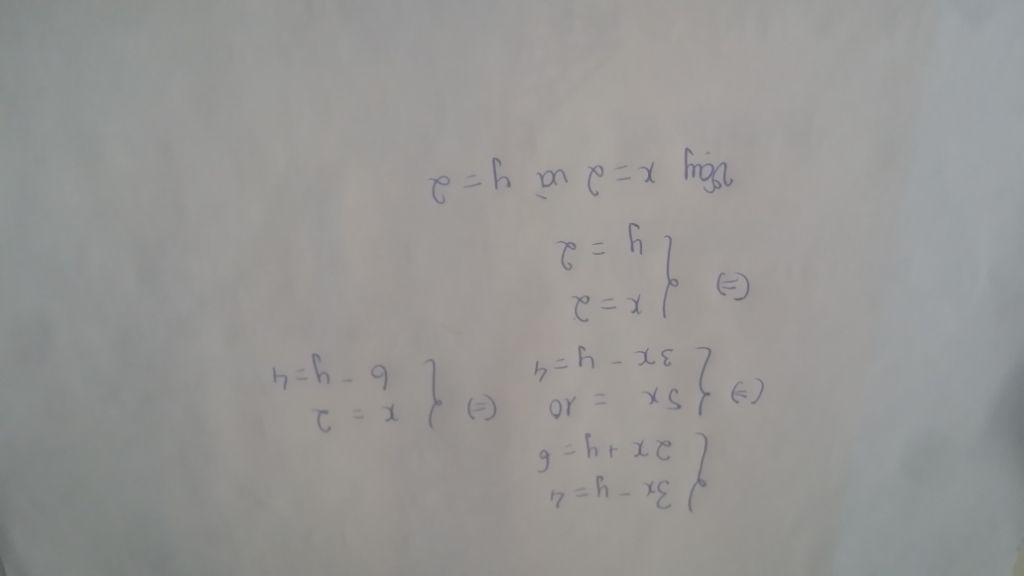 { 3x - y = 4
2x + y = 6
(=) { 5x = 10 (=) { x = 2
3x - y = 4 6 - y = 4
(=) { x = 2
y = 2
Vậy x = 2 và y = 2